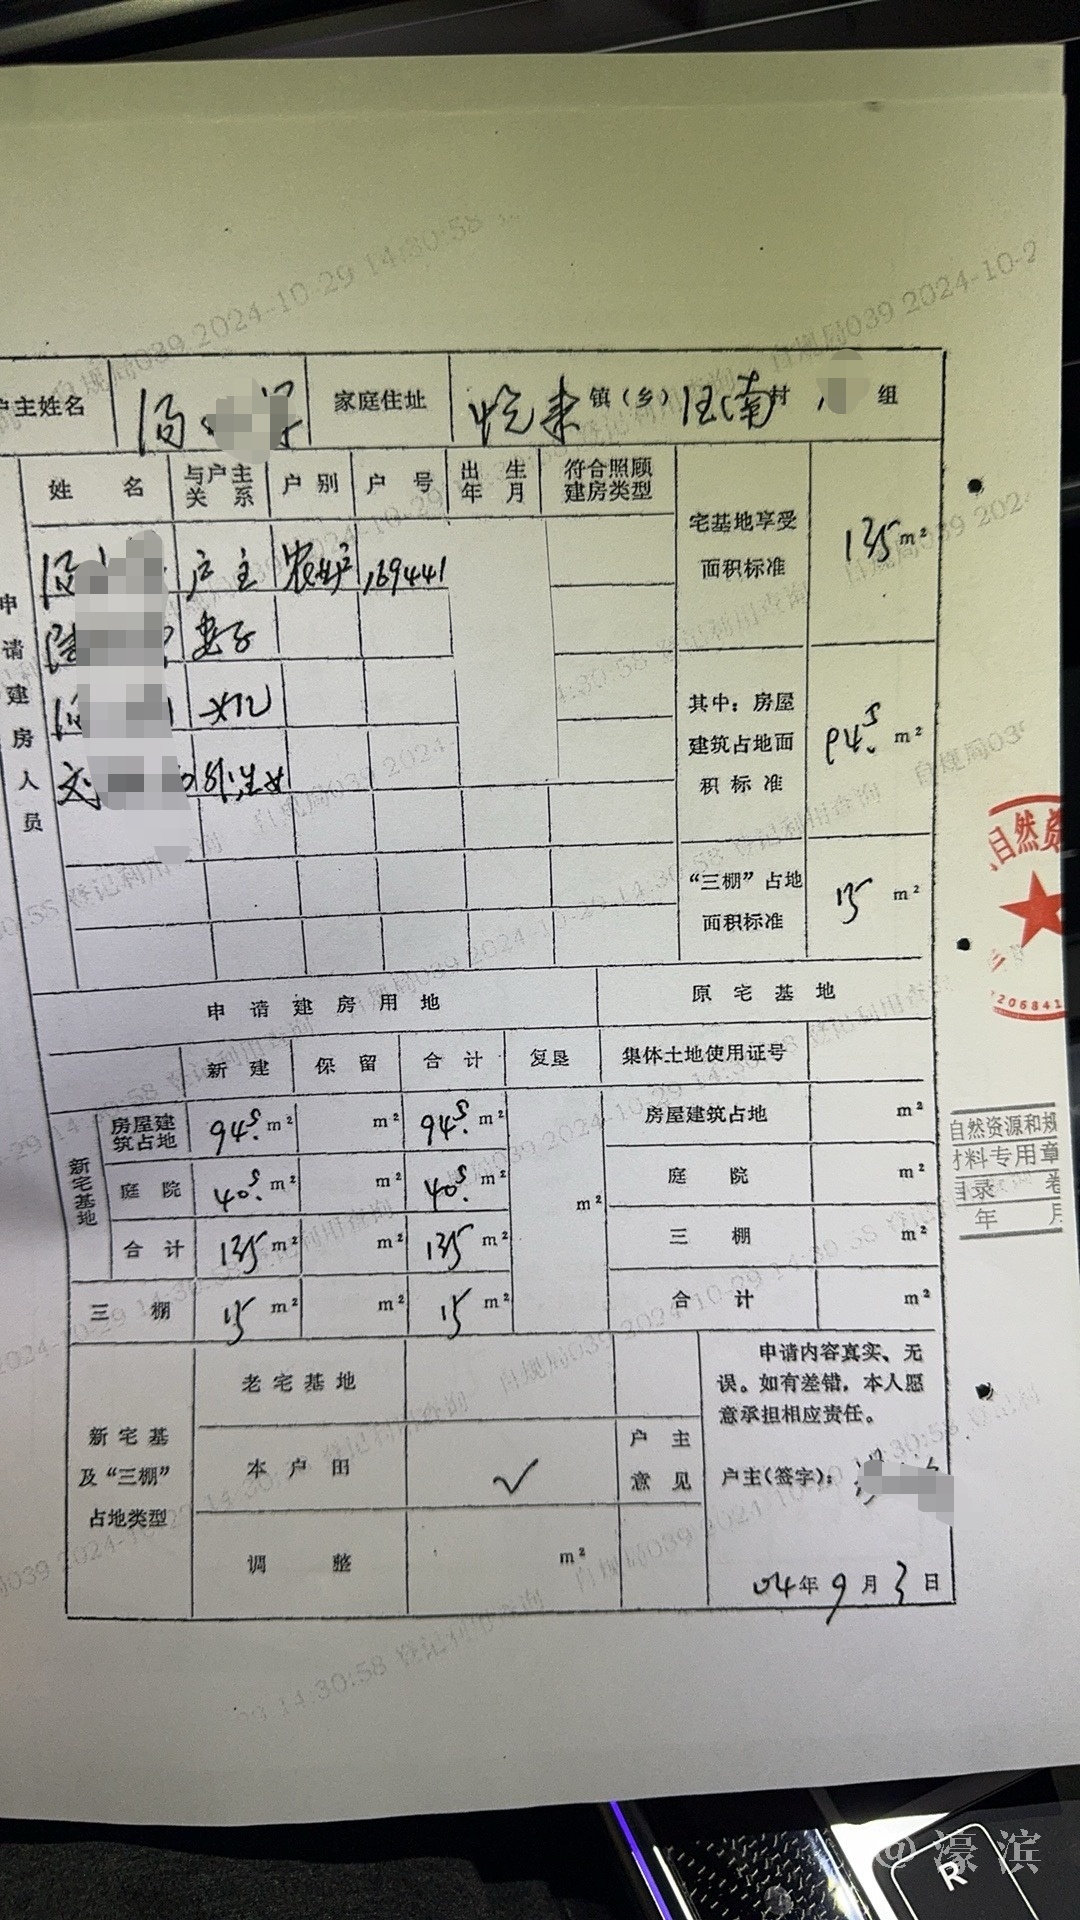 户主姓名 汤 家庭住址 悦来 镇（乡） 汪南 村 组
申请建房人员
姓名 与户主关系 户别 户号 出生年月 符合照顾建房类型 宅基地享受面积标准 135 m²
户主 农业户 169441
妻子
女儿 其中：房屋建筑占地面积标准 94.5 m²
外生女
“三棚”占地面积标准 15 m²
申请建房用地 原宅基地
新建 保留 合计 复垦 集体土地使用证号
新宅基地
房屋建筑占地 94.5 m² m² 94.5 m² m² 房屋建筑占地 m²
庭院 40.5 m² m² 40.5 m² 庭院 m²
合计 135 m² m² 135 m² 三棚 m²
三棚 15 m² m² 15 m² 合计 m²
新宅基及“三棚”占地类型
老宅基地
本户田 ✓
调整 m²
户主意见
申请内容真实、无
误。如有差错，本人愿
意承担相应责任。
户主(签字)：
04年9月3日
自然资
206841
自然资源和规
材料专用章
目录 卷
年 月
自规局039 2024-10-29 14:30:58 登记利用查询
R
@濠滨